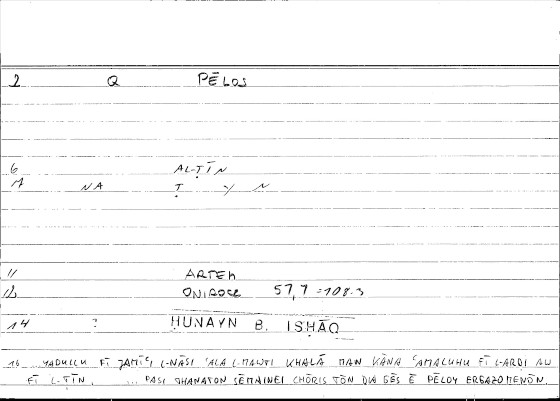 1 Q PĒLOS
6 AL-ṬĪN
7 NA Ṭ Y N
11 ARTEM
12 ONIROCR 57,7 = 108.3
14 ? ḤUNAYN B. ISḤĀQ
16 ... YADULLU FĪ ǦAMĪʿI L-NĀSI ʿALĀ L-MAWTI KHALĀ MAN KĀNA ʿAMALUHU FĪ L-ARḌI AW
FĪ L-ṬĪN. ... PASI THANATON SĒMAINEI CHŌRIS TŌN DIA GĒS Ē PĒLOY ERGAZOMENŌN.